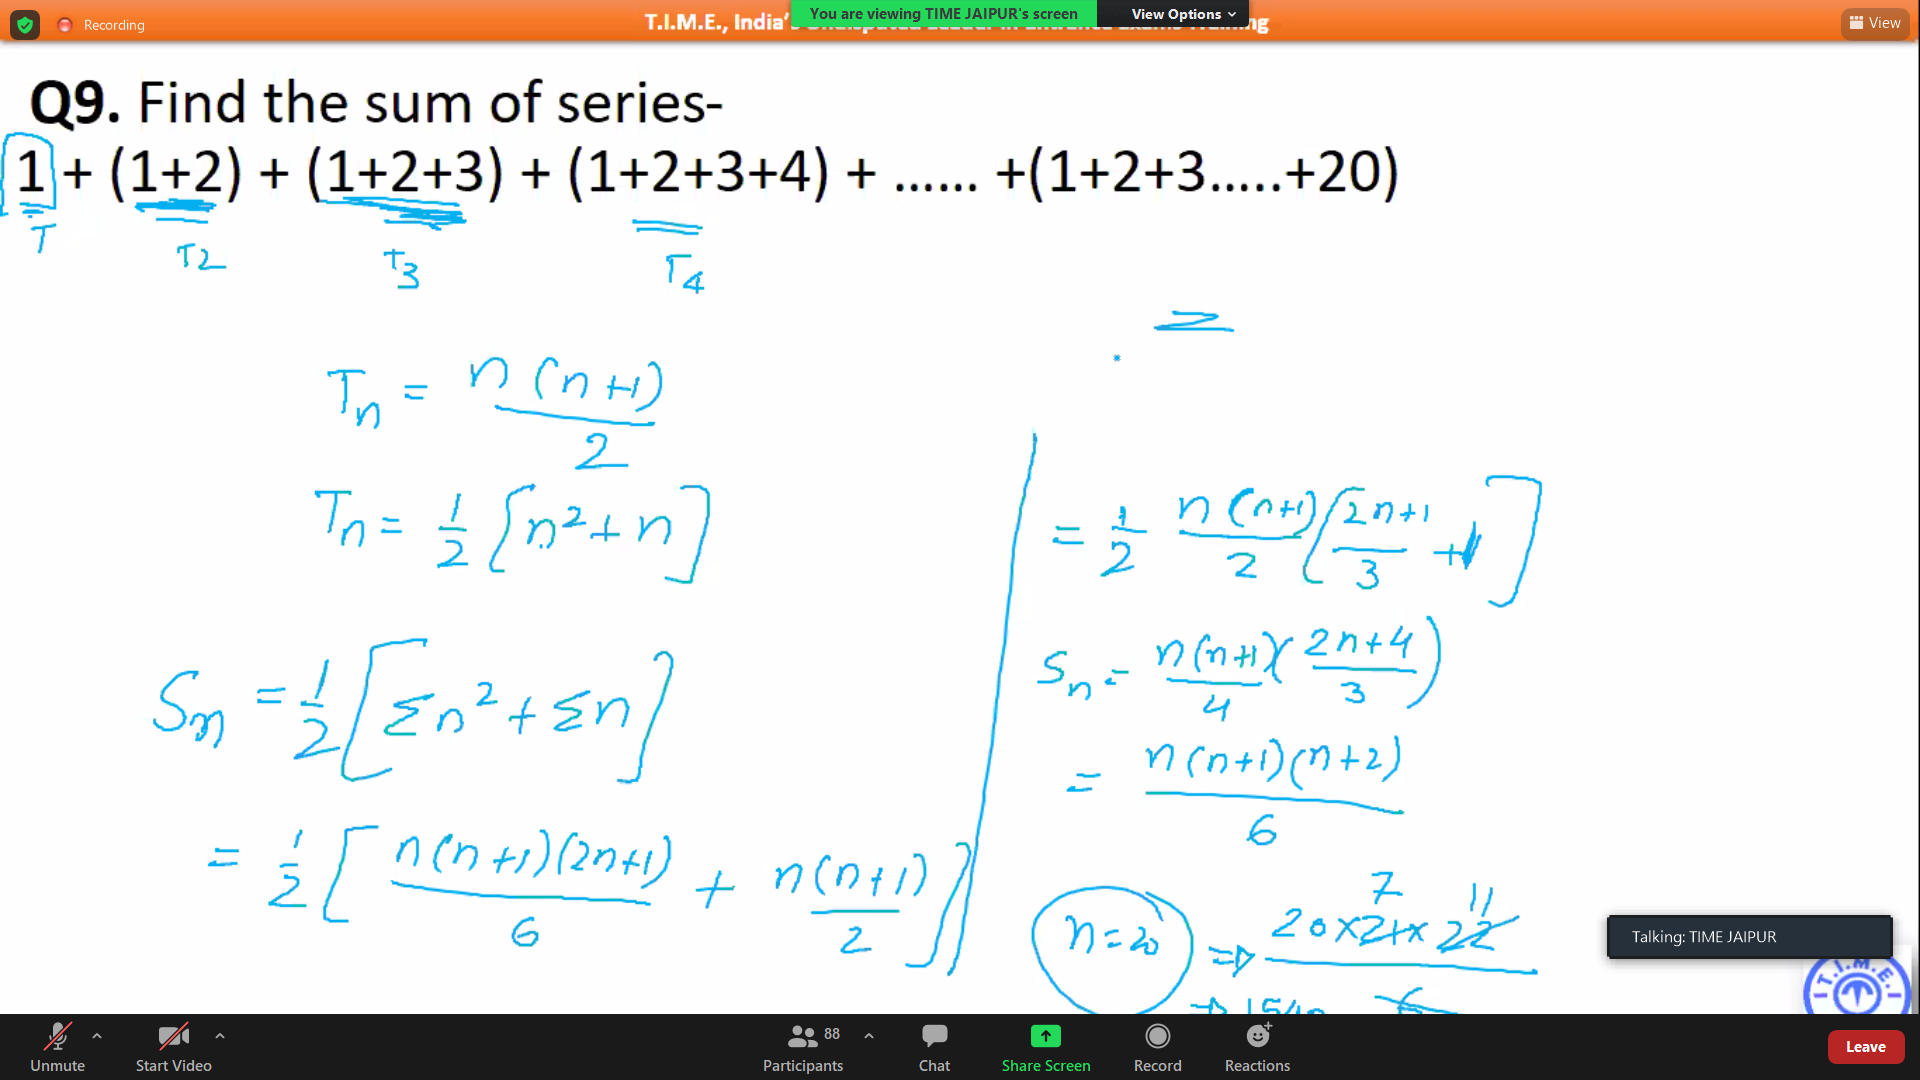 Recording
T.I.M.E., India's Undisputed Leader in Entrance Exams Training
You are viewing TIME JAIPUR's screen
View Options
View
Q9. Find the sum of series-
1 + (1+2) + (1+2+3) + (1+2+3+4) + ...... +(1+2+3.....+20)
T
T2
T3
T4
Tn = n(n+1)/2
Tn = 1/2 [n²+n]
Sn = 1/2 [Σn² + Σn]
= 1/2 [n(n+1)(2n+1)/6 + n(n+1)/2]
= 1/2 n(n+1)/2 (2n+1/3 +1]
Sn = n(n+1)/4 (2n+4/3)
= n(n+1)(n+2)/6
7 11
n=20 ⇒ 20×21×22/6
→ 1540
Talking: TIME JAIPUR
T.I.M.E.
Unmute
Start Video
88
Participants
Chat
Share Screen
Record
Reactions
Leave